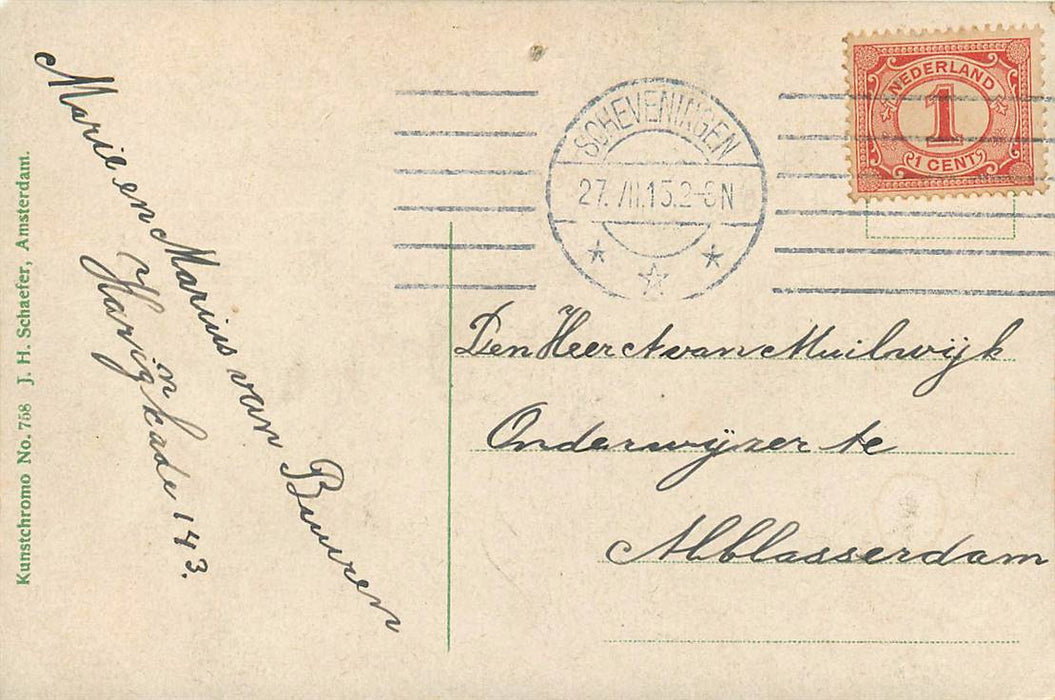 Kunstchromo No. 758 J. H. Schaefer, Amsterdam.
Marie en Marius van Buuren
Havenkade 143.
SCHEVENINGEN
27. VII.15.2-8N
NEDERLAND
1
1 CENT
Den Heer A van Muilwijk
Onderwijzer te
Alblasserdam